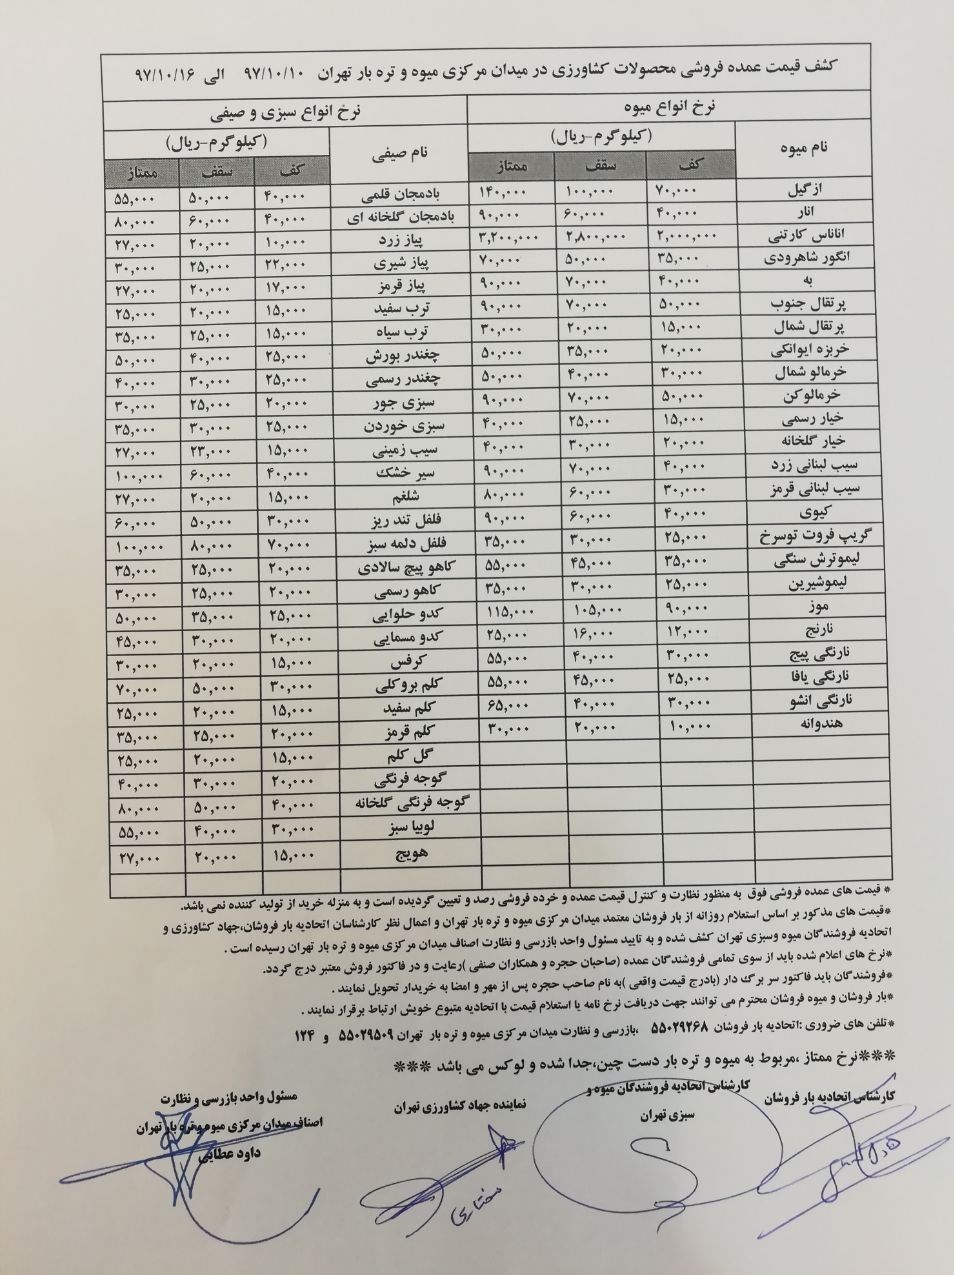 کشف قیمت عمده فروشی محصولات کشاورزی در میدان مرکزی میوه و تره بار تهران ۹۷/۱۰/۱۰ الی ۹۷/۱۰/۱۶
نرخ انواع میوه نرخ انواع سبزی و صیفی
نام میوه (کیلوگرم-ریال) نام صیفی (کیلوگرم-ریال)
کف سقف ممتاز کف سقف ممتاز
ازگیل ۷۰,۰۰۰ ۱۰۰,۰۰۰ ۱۴۰,۰۰۰ بادمجان قلمی ۴۰,۰۰۰ ۵۰,۰۰۰ ۵۵,۰۰۰
انار ۴۰,۰۰۰ ۶۰,۰۰۰ ۹۰,۰۰۰ بادمجان گلخانه ای ۴۰,۰۰۰ ۶۰,۰۰۰ ۸۰,۰۰۰
اناناس کارتنی ۲,۰۰۰,۰۰۰ ۲,۸۰۰,۰۰۰ ۳,۲۰۰,۰۰۰ پیاز زرد ۱۰,۰۰۰ ۲۰,۰۰۰ ۲۷,۰۰۰
انگور شاهرودی ۳۵,۰۰۰ ۵۰,۰۰۰ ۷۰,۰۰۰ پیاز شیری ۲۲,۰۰۰ ۲۵,۰۰۰ ۳۰,۰۰۰
به ۴۰,۰۰۰ ۷۰,۰۰۰ ۹۰,۰۰۰ پیاز قرمز ۱۷,۰۰۰ ۲۰,۰۰۰ ۲۷,۰۰۰
پرتقال جنوب ۵۰,۰۰۰ ۷۰,۰۰۰ ۹۰,۰۰۰ ترب سفید ۱۵,۰۰۰ ۲۰,۰۰۰ ۲۵,۰۰۰
پرتقال شمال ۱۵,۰۰۰ ۲۰,۰۰۰ ۳۰,۰۰۰ ترب سیاه ۱۵,۰۰۰ ۲۵,۰۰۰ ۳۵,۰۰۰
خربزه ایوانکی ۲۰,۰۰۰ ۳۵,۰۰۰ ۵۰,۰۰۰ چغندر بورش ۲۵,۰۰۰ ۴۰,۰۰۰ ۵۰,۰۰۰
خرمالو شمال ۳۰,۰۰۰ ۴۰,۰۰۰ ۵۰,۰۰۰ چغندر رسمی ۲۵,۰۰۰ ۳۰,۰۰۰ ۴۰,۰۰۰
خرمالوکن ۵۰,۰۰۰ ۷۰,۰۰۰ ۹۰,۰۰۰ سبزی جور ۲۰,۰۰۰ ۲۵,۰۰۰ ۳۰,۰۰۰
خیار رسمی ۱۵,۰۰۰ ۲۵,۰۰۰ ۴۰,۰۰۰ سبزی خوردن ۲۵,۰۰۰ ۳۰,۰۰۰ ۳۵,۰۰۰
خیار گلخانه ۲۰,۰۰۰ ۳۰,۰۰۰ ۴۰,۰۰۰ سیب زمینی ۱۵,۰۰۰ ۲۳,۰۰۰ ۲۷,۰۰۰
سیب لبنانی زرد ۴۰,۰۰۰ ۷۰,۰۰۰ ۹۰,۰۰۰ سیر خشک ۴۰,۰۰۰ ۶۰,۰۰۰ ۱۰۰,۰۰۰
سیب لبنانی قرمز ۳۰,۰۰۰ ۶۰,۰۰۰ ۸۰,۰۰۰ شلغم ۱۵,۰۰۰ ۲۰,۰۰۰ ۲۷,۰۰۰
کیوی ۴۰,۰۰۰ ۶۰,۰۰۰ ۹۰,۰۰۰ فلفل تند ریز ۳۰,۰۰۰ ۵۰,۰۰۰ ۶۰,۰۰۰
گریپ فروت توسرخ ۲۵,۰۰۰ ۳۰,۰۰۰ ۳۵,۰۰۰ فلفل دلمه سبز ۷۰,۰۰۰ ۸۰,۰۰۰ ۱۰۰,۰۰۰
لیموترش سنگی ۳۵,۰۰۰ ۴۵,۰۰۰ ۵۵,۰۰۰ کاهو پیچ سالادی ۲۰,۰۰۰ ۲۵,۰۰۰ ۳۵,۰۰۰
لیموشیرین ۲۵,۰۰۰ ۳۰,۰۰۰ ۳۵,۰۰۰ کاهو رسمی ۲۰,۰۰۰ ۲۵,۰۰۰ ۳۰,۰۰۰
موز ۹۰,۰۰۰ ۱۰۵,۰۰۰ ۱۱۵,۰۰۰ کدو حلوایی ۲۵,۰۰۰ ۳۵,۰۰۰ ۵۰,۰۰۰
نارنج ۱۲,۰۰۰ ۱۶,۰۰۰ ۲۵,۰۰۰ کدو مسمایی ۲۰,۰۰۰ ۳۰,۰۰۰ ۴۵,۰۰۰
نارنگی پیج ۳۰,۰۰۰ ۴۰,۰۰۰ ۵۵,۰۰۰ کرفس ۱۵,۰۰۰ ۲۰,۰۰۰ ۳۰,۰۰۰
نارنگی یافا ۲۵,۰۰۰ ۴۵,۰۰۰ ۵۵,۰۰۰ کلم بروکلی ۳۰,۰۰۰ ۵۰,۰۰۰ ۷۰,۰۰۰
نارنگی انشو ۳۰,۰۰۰ ۴۰,۰۰۰ ۶۵,۰۰۰ کلم سفید ۱۵,۰۰۰ ۲۰,۰۰۰ ۲۵,۰۰۰
هندوانه ۱۰,۰۰۰ ۲۰,۰۰۰ ۳۰,۰۰۰ کلم قرمز ۲۰,۰۰۰ ۲۵,۰۰۰ ۳۵,۰۰۰
گل کلم ۱۵,۰۰۰ ۲۰,۰۰۰ ۲۵,۰۰۰
گوجه فرنگی ۲۰,۰۰۰ ۳۰,۰۰۰ ۴۰,۰۰۰
گوجه فرنگی گلخانه ۴۰,۰۰۰ ۵۰,۰۰۰ ۸۰,۰۰۰
لوبیا سبز ۳۰,۰۰۰ ۴۰,۰۰۰ ۵۵,۰۰۰
هویج ۱۵,۰۰۰ ۲۰,۰۰۰ ۲۷,۰۰۰
* قیمت های عمده فروشی فوق به منظور نظارت و کنترل قیمت عمده و خرده فروشی رصد و تعیین گردیده است و به منزله خرید از تولید کننده نمی باشد.
*قیمت های مذکور بر اساس استعلام روزانه از بار فروشان معتمد میدان مرکزی میوه و تره بار تهران و اعمال نظر کارشناسان اتحادیه بار فروشان،جهاد کشاورزی و
اتحادیه فروشندگان میوه وسبزی تهران کشف شده و به تایید مسئول واحد بازرسی و نظارت اصناف میدان مرکزی میوه و تره بار تهران رسیده است .
*نرخ های اعلام شده باید از سوی تمامی فروشندگان عمده (صاحبان حجره و همکاران صنفی )رعایت و در فاکتور فروش معتبر درج گردد.
*فروشندگان باید فاکتور سر برگ دار (بادرج قیمت واقعی )به نام صاحب حجره پس از مهر و امضا به خریدار تحویل نمایند .
*بار فروشان و میوه فروشان محترم می توانند جهت دریافت نرخ نامه یا استعلام قیمت با اتحادیه متبوع خویش ارتباط برقرار نمایند .
*تلفن های ضروری :اتحادیه بار فروشان ۵۵۰۲۹۲۶۸ ،بازرسی و نظارت میدان مرکزی میوه و تره بار تهران ۵۵۰۲۹۵۰۹ و ۱۲۴
***نرخ ممتاز ،مربوط به میوه و تره بار دست چین،جدا شده و لوکس می باشد ***
کارشناس اتحادیه بار فروشان
کارشناس اتحادیه فروشندگان میوه و
سبزی تهران
نماینده جهاد کشاورزی تهران
مسئول واحد بازرسی و نظارت
اصناف میدان مرکزی میوه و تره بار تهران
داود عطایی
مختاری